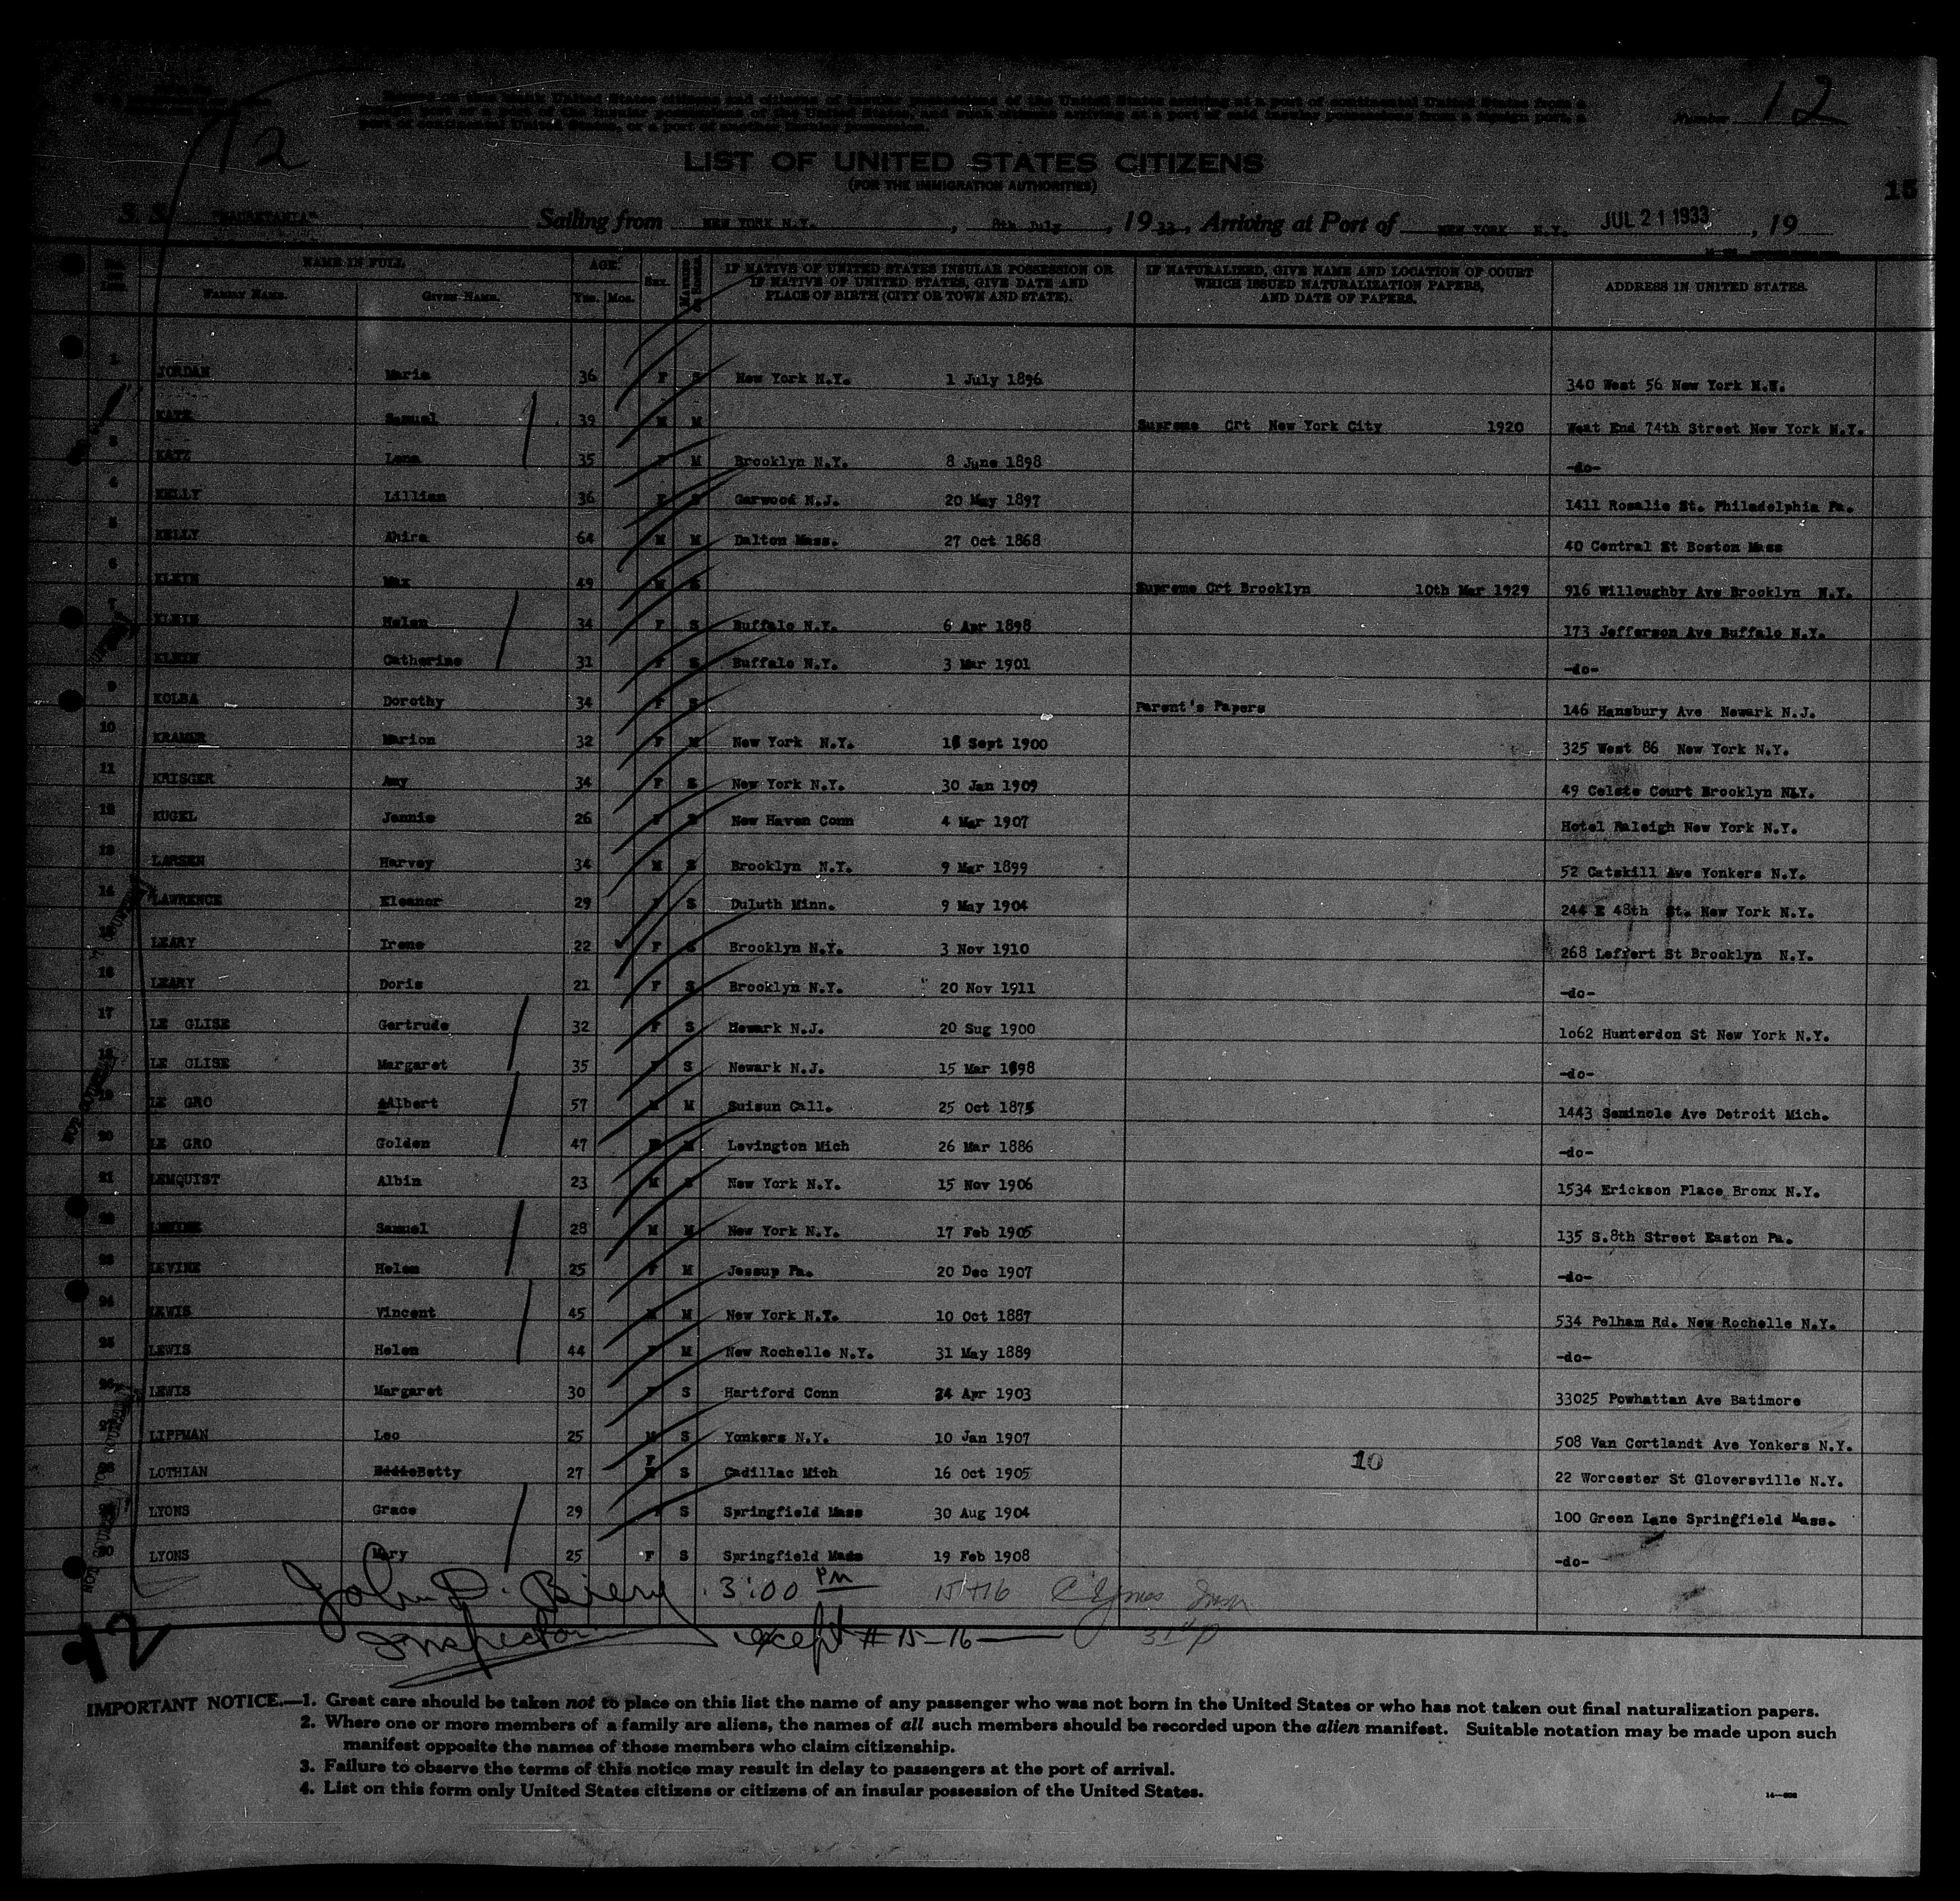 12
Number 12
LIST OF UNITED STATES CITIZENS
(FOR THE IMMIGRATION AUTHORITIES)
15
S. S. "MAURETANIA" Sailing from NEW YORK N.Y. , 8th July , 19 33 , Arriving at Port of NEW YORK N.Y. JUL 21 1933 , 19
NAME IN FULL AGE. SEX. IF NATIVE OF UNITED STATES INSULAR POSSESSION OR IF NATIVE OF UNITED STATES, GIVE DATE AND PLACE OF BIRTH (CITY OR TOWN AND STATE). IF NATURALIZED, GIVE NAME AND LOCATION OF COURT WHICH ISSUED NATURALIZATION PAPERS, AND DATE OF PAPERS. ADDRESS IN UNITED STATES.
FAMILY NAME. GIVEN NAME. YRS. MOS.
1 JORDAN Marie 36 F S New York N.Y. 1 July 1896 340 West 56 New York N.Y.
KATZ Samuel 39 M M Supreme Crt New York City 1920 West End 74th Street New York N.Y.
3 KATZ Lena 35 F M Brooklyn N.Y. 8 June 1898 -do-
4 KELLY Lillian 36 F S Garwood N.J. 20 May 1897 1411 Rosalie St. Philadelphia Pa.
5 KELLY Ahira 64 M M Dalton Mass. 27 Oct 1868 40 Central St Boston Mass
6 KLEIN Max 49 M S Supreme Crt Brooklyn 10th Mar 1929 916 Willoughby Ave Brooklyn N.Y.
7 KLEIN Helen 34 F S Buffalo N.Y. 6 Apr 1898 173 Jefferson Ave Buffalo N.Y.
KLEIN Catherine 31 F S Buffalo N.Y. 3 Mar 1901 -do-
9 KOLBA Dorothy 34 F S Parent's Papers 146 Hansbury Ave Newark N.J.
10 KRAMER Marion 32 F M New York N.Y. Sept 1900 325 West 86 New York N.Y.
11 KRISGER Amy 34 F S New York N.Y. 30 Jan 1909 49 Celste Court Brooklyn N.Y.
12 KUGEL Jennie 26 F S New Haven Conn 4 Mar 1907 Hotel Raleigh New York N.Y.
13 LARSEN Harvey 34 M S Brooklyn N.Y. 9 Mar 1899 52 Catskill Ave Yonkers N.Y.
14 LAWRENCE Eleanor 29 F S Duluth Minn. 9 May 1904 244 E 48th St. New York N.Y.
15 LEARY Irene 22 F S Brooklyn N.Y. 3 Nov 1910 268 Leffert St Brooklyn N.Y.
16 LEARY Doris 21 F S Brooklyn N.Y. 20 Nov 1911 -do-
17 LE GLISE Gertrude 32 F S Newark N.J. 20 Sug 1900 1o62 Hunterdon St New York N.Y.
18 LE GLISE Margaret 35 F S Newark N.J. 15 Mar 1898 -do-
19 LE GRO AAlbert 57 M M Suisun Call. 25 Oct 1875 1443 Seminole Ave Detroit Mich.
20 LE GRO Golden 47 M Levington Mich 26 Mar 1886 -do-
21 LEMQUIST Albin 23 M S New York N.Y. 15 Nov 1906 1534 Erickson Place Bronx N.Y.
22 LEVINE Samuel 28 M M New York N.Y. 17 Feb 1905 135 S.8th Street Easton Pa.
23 LEVINE Helen 25 F M Jessup Pa. 20 Dec 1907 -do-
24 LEWIS Vincent 45 M M New York N.Y. 10 Oct 1887 534 Pelham Rd. New Rochelle N.Y.
25 LEWIS Helen 44 F M New Rochelle N.Y. 31 May 1889 -do-
26 LEWIS Margaret 30 F S Hartford Conn 24 Apr 1903 33025 Powhattan Ave Batimore
27 LIPPMAN Leo 25 M S Yonkers N.Y. 10 Jan 1907 508 Van Cortlandt Ave Yonkers N.Y.
28 LOTHIAN EddieBetty 27 F S Cadillac Mich 16 Oct 1905 10 22 Worcester St Gloversville N.Y.
29 LYONS Grace 29 F S Springfield Mass 30 Aug 1904 100 Green Lane Springfield Mass.
30 LYONS Mary 25 F S Springfield Mass 19 Feb 1908 -do-
John D. Biery 3:00 PM 15+16
Inspector except #15-16
12
IMPORTANT NOTICE.—1. Great care should be taken not to place on this list the name of any passenger who was not born in the United States or who has not taken out final naturalization papers.
2. Where one or more members of a family are aliens, the names of all such members should be recorded upon the alien manifest. Suitable notation may be made upon such
manifest opposite the names of those members who claim citizenship.
3. Failure to observe the terms of this notice may result in delay to passengers at the port of arrival.
4. List on this form only United States citizens or citizens of an insular possession of the United States.